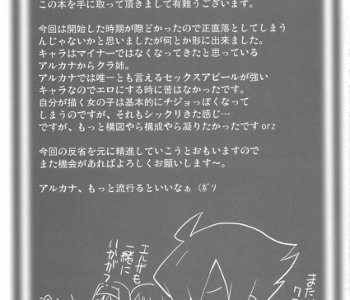 この本を手に取って頂きまして有難うございます。
今回は開始した時期が際どかったので正直落としてしまう
んじゃないかと思いましたが何とか形に出来ました。
キャラはマイナーではなくなってきたと思っている
アルカナからクラ姉。
アルカナでは唯一とも言えるセックスアピールが強い
キャラなのでエロにする時に苦はなかったです。
自分が描く女の子は基本的にチジョっぽくなって
しまうのですが、それもシックリきた感じ…
ですが、もっと構図やら構成やら凝りたかったですorz
今回の反省を元に精進していこうとおもいますので
また機会があればよろしくお願いします～。
アルカナ、もっと流行るといいなぁ（ボソ
エルザも
一緒に
いかが？